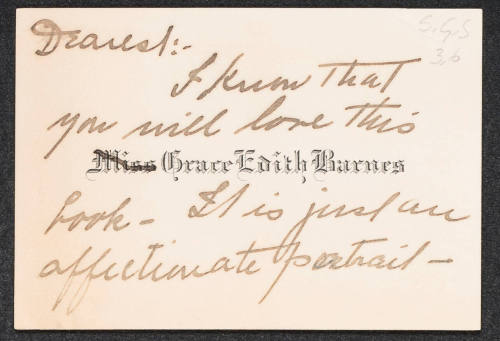 Dearest:-
S.G.S
3,6
I know that
you will love this
Miss Grace Edith Barnes
book - It is just an
affectionate portrait -